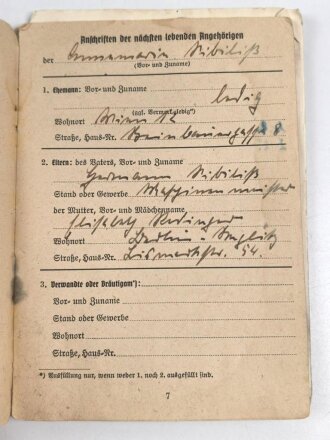 Anschriften der nächsten lebenden Angehörigen
der Annamaria Nibiliß
(Vor- und Zuname)
1. Ehemann: Vor- und Zuname
ledig
(ggl. Vermerk „ledig“)
Wohnort Wien 12
Straße, Haus-Nr. 8
2. Eltern: des Vaters, Vor- und Zuname
Hermann Nibiliß
Stand oder Gewerbe Maschinenmeister
der Mutter, Vor- und Mädchenname
Elisabeth
Wohnort Berlin - Steglitz
Straße, Haus-Nr. Bismarckstr. 54.
3. Verwandte oder Bräutigam*):
Vor- und Zuname
Stand oder Gewerbe
Wohnort
Straße, Haus-Nr.
*) Ausfüllung nur, wenn weder 1. noch 2. ausgefüllt sind.
7